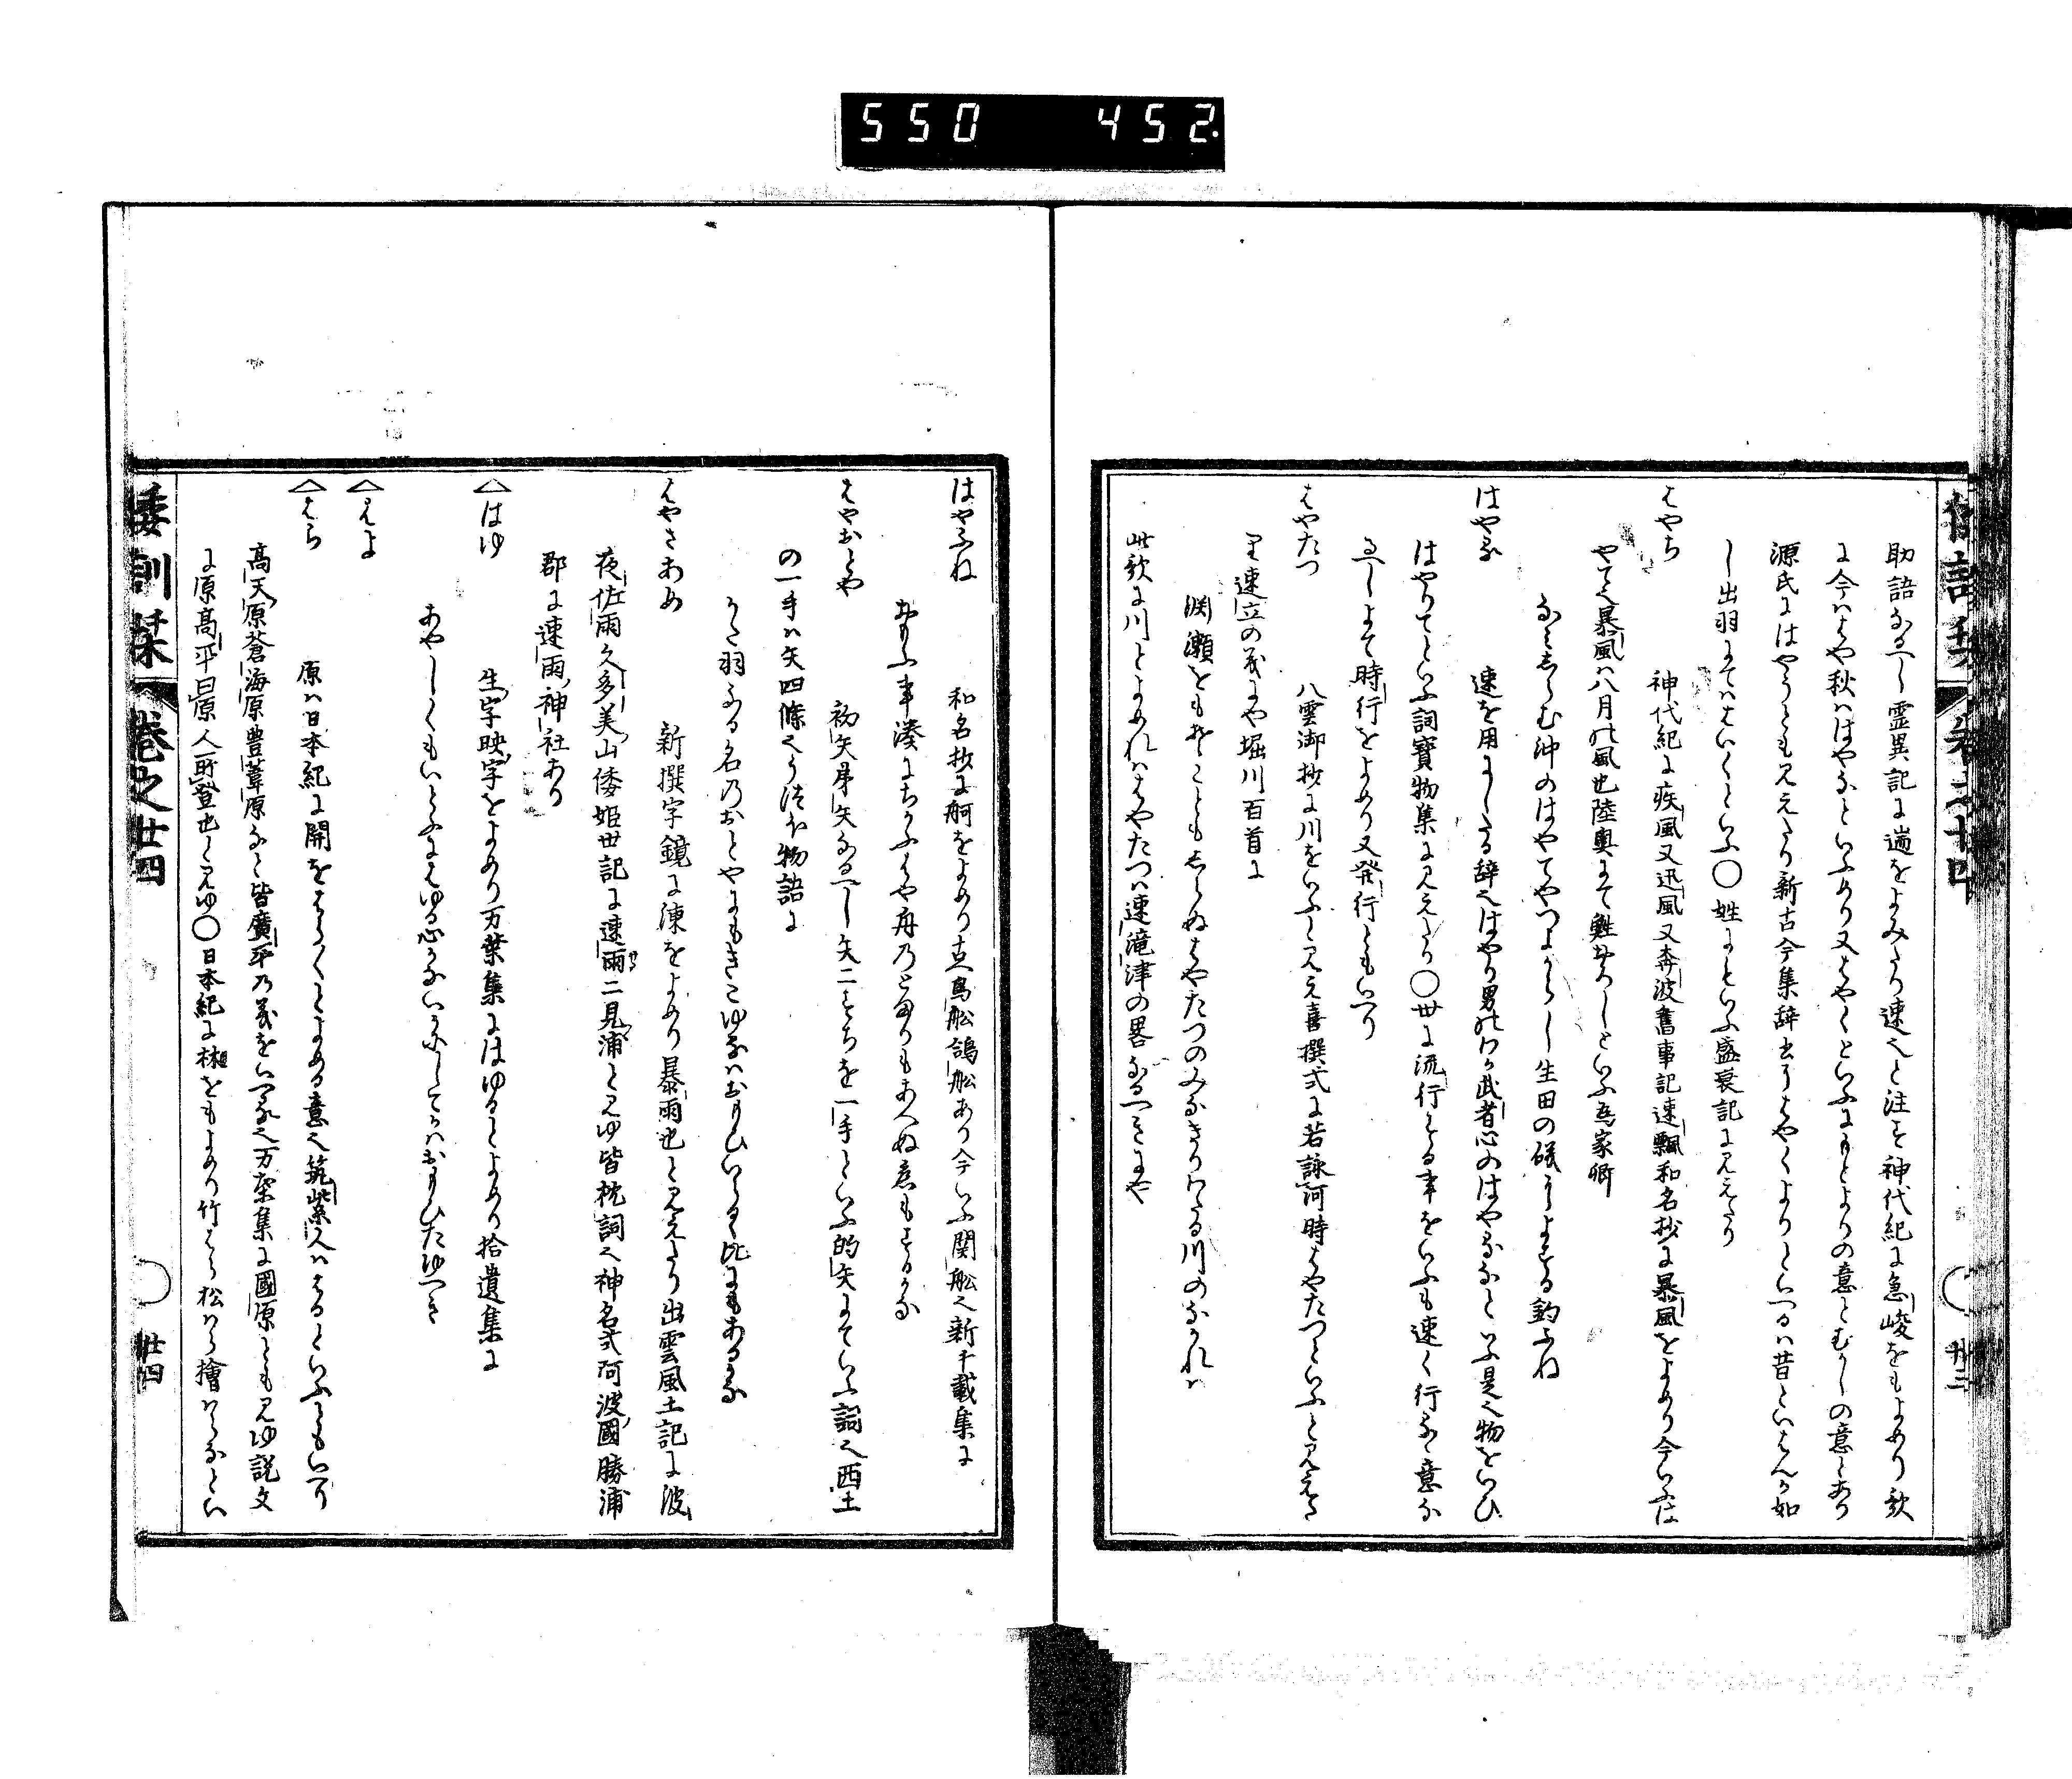 550 452
助語なるへし霊異記に遄をよみたり速也と注す神代紀に急峻をもよめり歌
に今ははや秋ははやなといふめり又はやくといふにもとよりの意とむかしの意とあり
源氏にはやうとも見えたり新古今集辞書にはやくよりといへるは昔といはんか如
し出羽にてははいくといふ〇姓にといふ盛衰記に見えたり
はやち 神代紀に疾風又迅風又奔波舊事記速飄和名抄に暴風をよめり今いふは
やて也暴風は八月の風也陸奥にて鮭おろしといふ為家卿
なみあらむ沖のはやてやつよからし生田の礒によする釣ふね
はやる 速を用にしたる辞也はやり男のわか武者心のはやるなといふ是也物をいひ
はやりてといふ詞寳物集に見えたり〇世に流行する事をいふも速く行るゝ意な
るへしよて時行をよめり又発行ともいへり
はやたつ 八雲御抄に川をいふと見え喜撰式に若詠河時はやたつといふと見えた
り速立の義にや堀川百首に
渕瀬をもそこともしらぬはやたつのみなきりわたる川のなかれは
此歌に川とよめれははやたつは速滝津の畧なるへきにや
はやふね 和名抄に舸をよめり古鳥舩鴿舩あり今いふ関舩也新千載集に
おもふ事湊にちかふはや舟のとまりもあへぬ恋もするかな
はやおとや 初矢弟矢なるへし矢二すちを一手といふ的矢にていふ詞也西土
の一手は矢四條也うつほ物語に
かた羽なる名のおとやにもきこゆるはおもひいらるゝ比にもあるかな
はやさあめ 新撰字鏡に涷をよめり暴雨也と見えたり出雲風土記に波
夜佐雨久多美山倭姫世記に速雨二見浦と見ゆ皆枕詞也神名式阿波國勝浦
郡に速雨神社あり
△はゆ 生字映字をよめり万葉集にはゆるとよめり拾遺集に
あやしくもいとふにはゆる心かないかにしてかはおもひたゆへき
△はよ
△はら 原は日本紀に開をはらくとよめる意也筑紫人ははるといふともいへり
高天原蒼海原豊葦原なと皆廣平の義をいへる也万葉集に國原とも見ゆ説文
に原高平曰原人所登也と見ゆ〇日本紀に林をもよめり竹はら松はら檜はらなとい
倭訓栞 巻之廿四 廿四